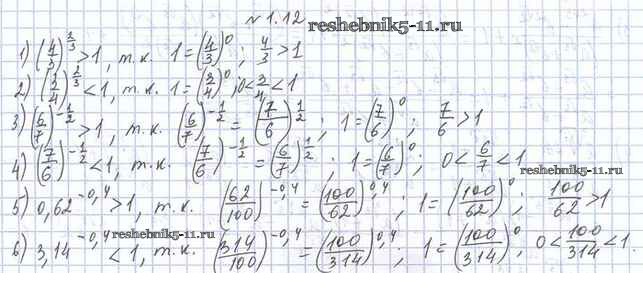 № 1.12
reshebnik5-11.ru
1) (4/3)^(2/3) > 1, т.к. 1 = (4/3)^0 ; 4/3 > 1
2) (3/4)^(2/3) < 1, т.к. 1 = (3/4)^0 ; 0 < 3/4 < 1
3) (6/7)^(-1/2) > 1, т.к. (6/7)^(-1/2) = (7/6)^(1/2) ; 1 = (7/6)^0 ; 7/6 > 1
4) (7/6)^(-1/2) < 1, т.к. (7/6)^(-1/2) = (6/7)^(1/2) ; 1 = (6/7)^0 ; 0 < 6/7 < 1
reshebnik5-11.ru
5) 0,62^(-0,4) > 1, т.к. (62/100)^(-0,4) = (100/62)^(0,4) ; 1 = (100/62)^0 ; 100/62 > 1
reshebnik5-11.ru
6) 3,14^(-0,4) < 1, т.к. (314/100)^(-0,4) = (100/314)^(0,4) ; 1 = (100/314)^0, 0 < 100/314 < 1.